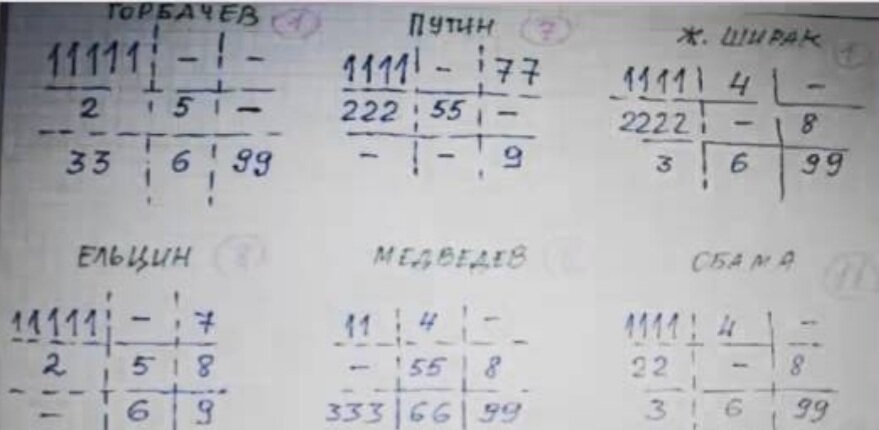 ГОРБАЧЕВ 1
11111 - -
2 5 -
33 6 99
ПУТИН 7
1111 - 77
222 55 -
- - 9
Ж. ШИРАК 1
1111 4 -
2222 - 8
3 6 99
ЕЛЬЦИН 8
11111 - 7
2 5 8
- 6 9
МЕДВЕДЕВ
11 4 -
- 55 8
333 66 99
ОБАМА 11
1111 4 -
22 - 8
3 6 99